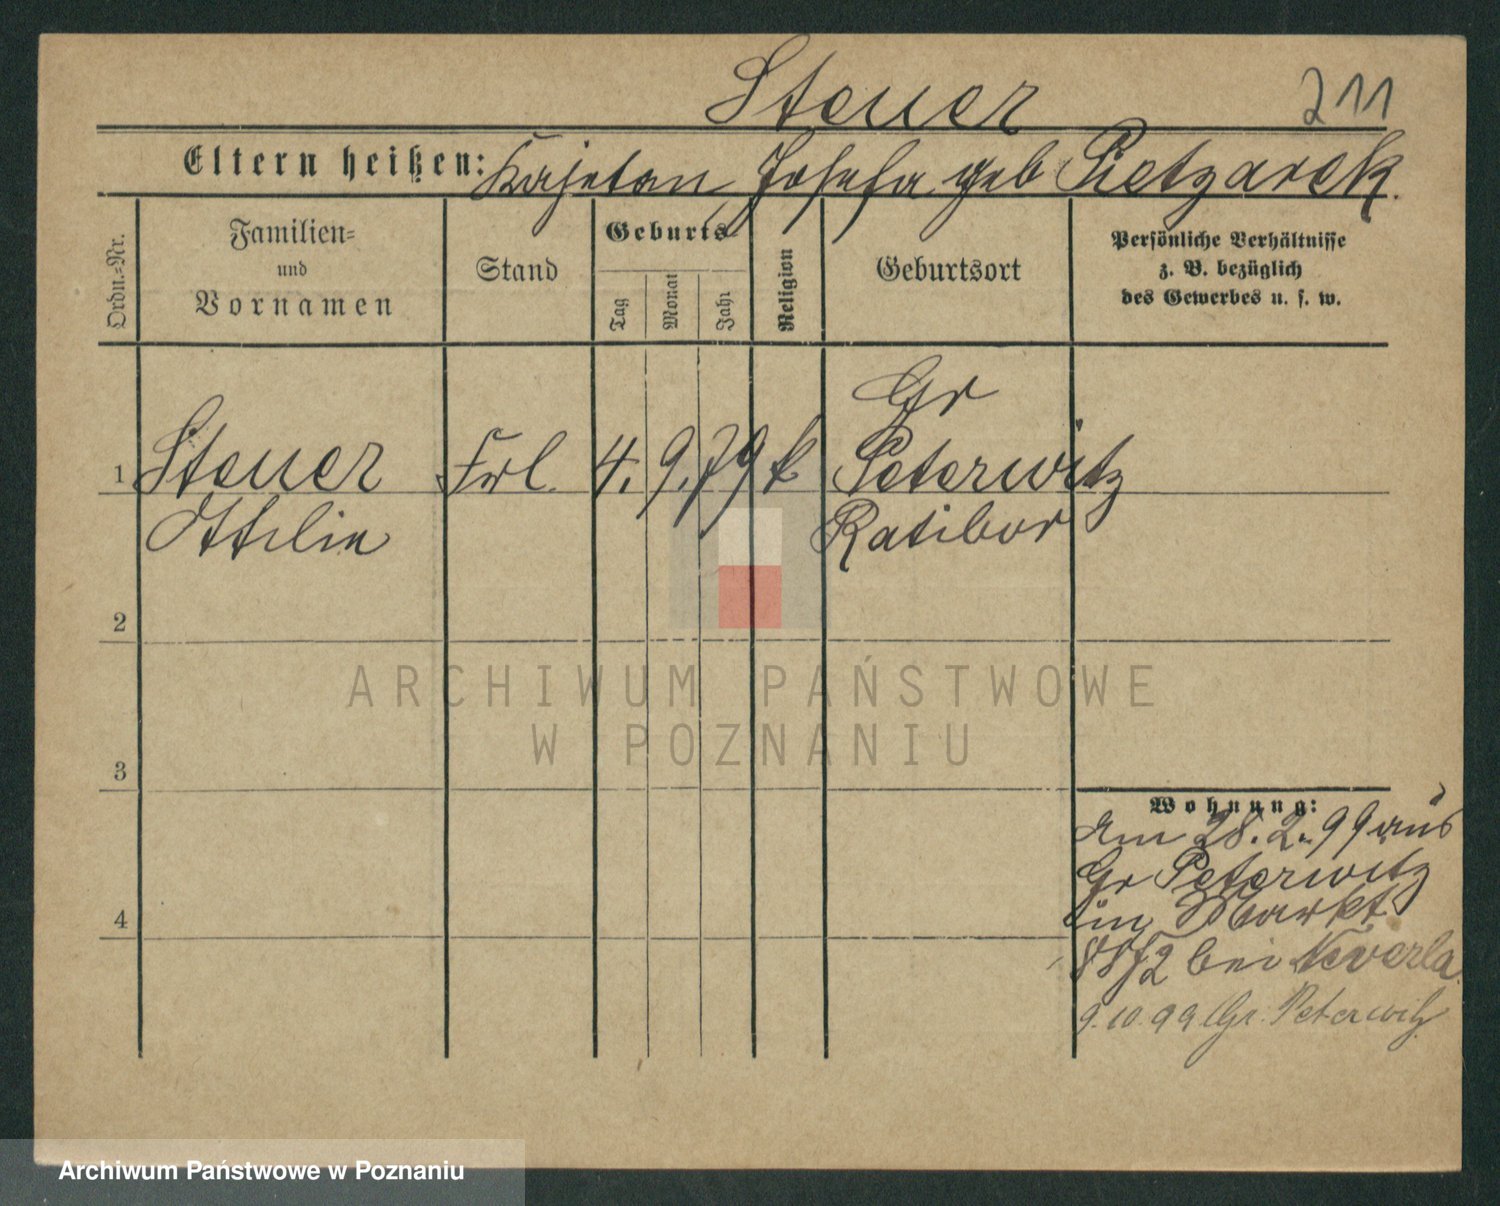 Steuer 211
Eltern heißen: Kajetan, Josefa geb Pietzarek.
Ordn.=Nr.
Familien=
und
Vornamen
Stand
Geburts-
Tag
Monat
Jahr
Religion
Geburtsort
Persönliche Verhältnisse
z. B. bezüglich
des Gewerbes u. s. w.
Gr
1 Steuer Frl. 4. 9. 79 k Peterwitz
Ottilie Ratibor
2
ARCHIWUM PAŃSTWOWE
W POZNANIU
3
Wohnung:
am 28.2.99 aus
Gr Peterwitz
Markt
4
bei
9.10.99 Gr. Peterwitz
Archiwum Państwowe w Poznaniu